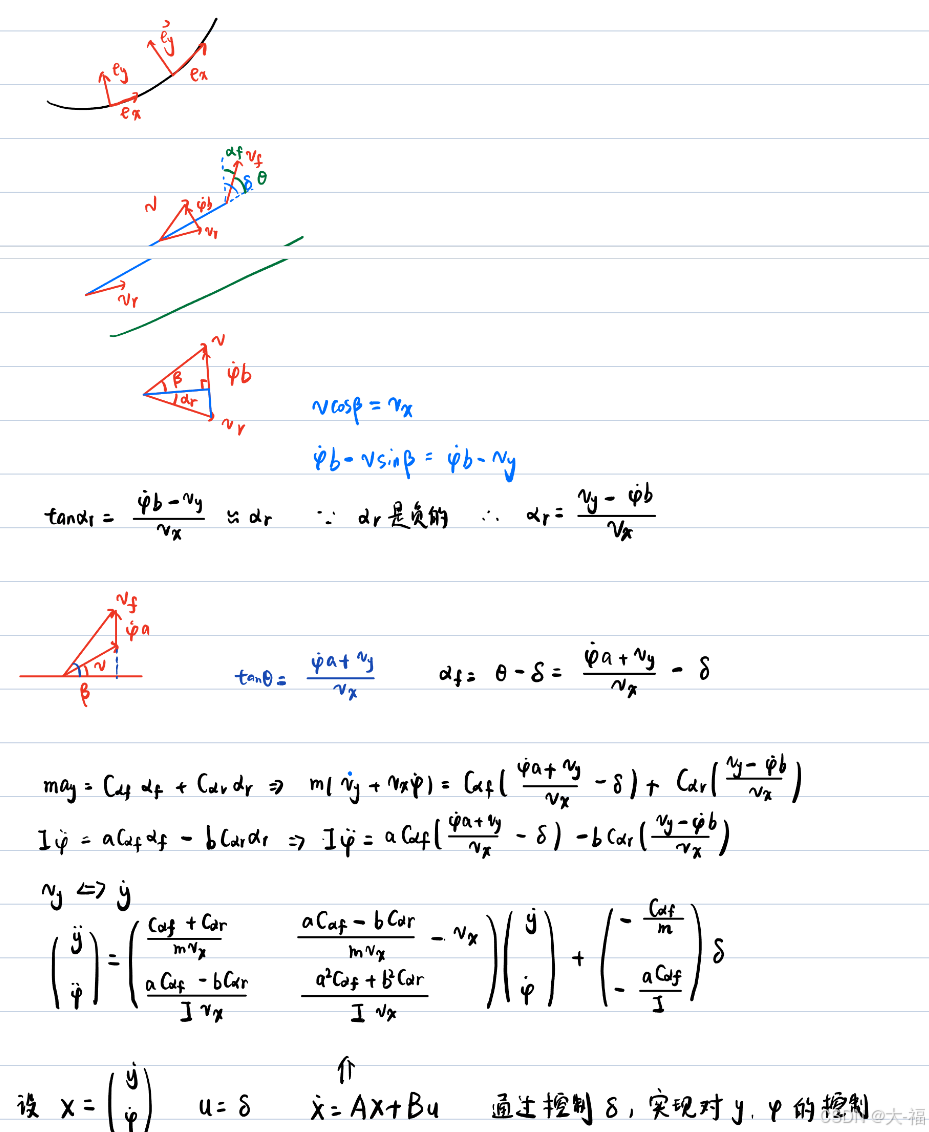 e⃗y
ey
ex
ex
αf vf
θ
δ
v φ̇b
vr
vr
v
φ̇b
β
αr
vr
vcosβ = vx
φ̇b - vsinβ = φ̇b - vy
tanαr = (φ̇b - vy)/vx ≈ αr ∵ αr是负的 ∴ αr = (vy - φ̇b)/vx
vf
φ̇a
v
β
tanθ = (φ̇a + vy)/vx αf = θ - δ = (φ̇a + vy)/vx - δ
may = Cαf αf + Cαr αr ⇒ m(v̇y + vxφ̇) = Cαf((φ̇a + vy)/vx - δ) + Cαr((vy - φ̇b)/vx)
Iφ̈ = aCαf αf - bCαr αr ⇒ Iφ̈ = aCαf((φ̇a + vy)/vx - δ) - bCαr((vy - φ̇b)/vx)
vy ⇔ ẏ
(ÿ; φ̈) = ((Cαf + Cαr)/(mvx), (aCαf - bCαr)/(mvx) - vx; (aCαf - bCαr)/(Ivx), (a²Cαf + b²Cαr)/(Ivx)) (ẏ; φ̇) + (-Cαf/m; -aCαf/I) δ
⇑
设 X = (ẏ; φ̇) u = δ ẋ = AX + Bu 通过控制δ, 实现对y, φ的控制
CSDN @大-福